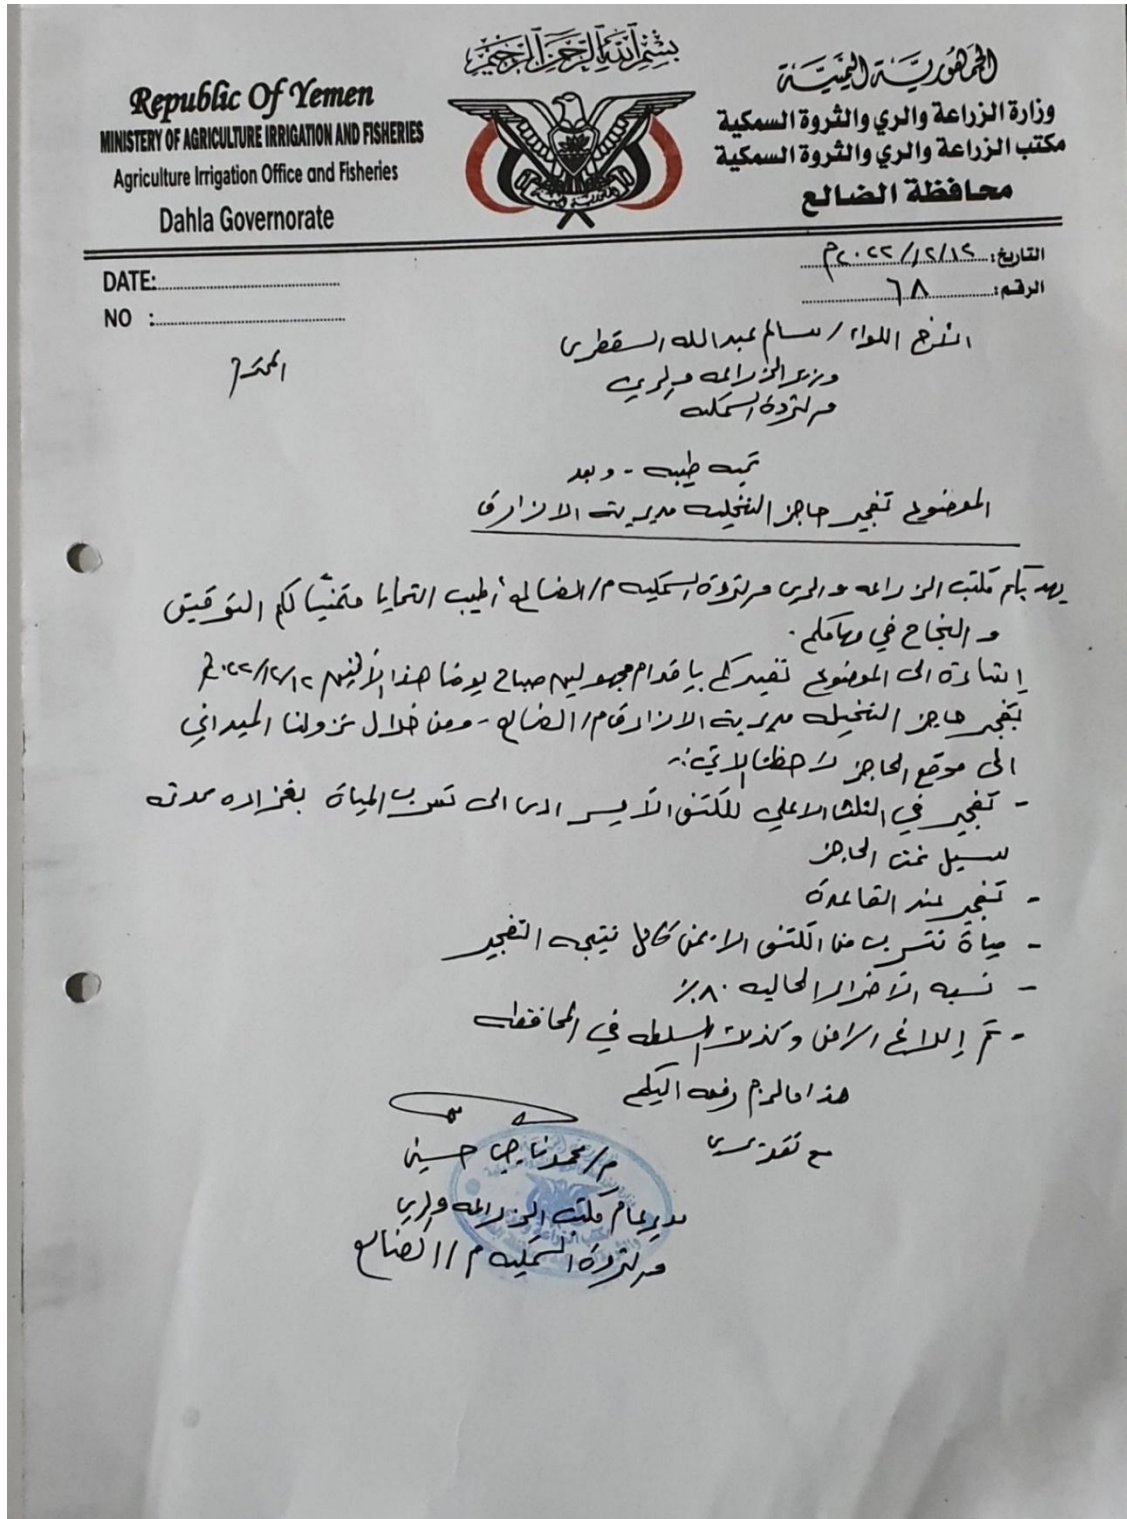 بسم الله الرحمن الرحيم
الجمهورية اليمنية
وزارة الزراعة والري والثروة السمكية
مكتب الزراعة والري والثروة السمكية
محافظة الضالع
Republic Of Yemen
MINISTRY OF AGRICULTURE IRRIGATION AND FISHERIES
Agriculture Irrigation Office and Fisheries
Dahla Governorate
التاريخ: ١٢/١٢/٢٠٢٢م
الرقم: ٦٨
DATE:
NO :
اللواء / سالم عبدالله السقطري المحترم
وزير الزراعه والري
والثروة السمكيه
تحيه طيبه - وبعد
الموضوع تفجير حاجز النخيله مديرية الازارق
يهديكم مكتب الزراعه والري والثروة السمكيه م/الضالع أطيب التحايا متمنياً لكم التوفيق
و النجاح في مهامكم.
إشارة الى الموضوع نفيدكم بإقدام مجهولين صباح يومنا هذا الأثنين ١٢/١٢/٢٠٢٢م
بتفجير حاجز النخيله مديرية الازارق م/الضالع - ومن خلال نزولنا الميداني
الى موقع الحاجز لاحظنا الاتي:-
- تفجير في الثلث الاعلى للكتف الأيسر ادى الى تسرب المياة بغزاره
سيل تحت الحاجز
- تفجير عند القاعدة
- مياة تتسرب من الكتف الايمن كامل نتيجه التفجير
- نسبه الأضرار الحاليه ٨٠٪
- تم إبلاغ الامن وكذلك السلطه في المحافظه
هذا مالزم رفعه اليكم
مع تقديري
م/محمد ناجي حسين
مدير عام مكتب الزراعه والري
والثروة السمكيه م/الضالع